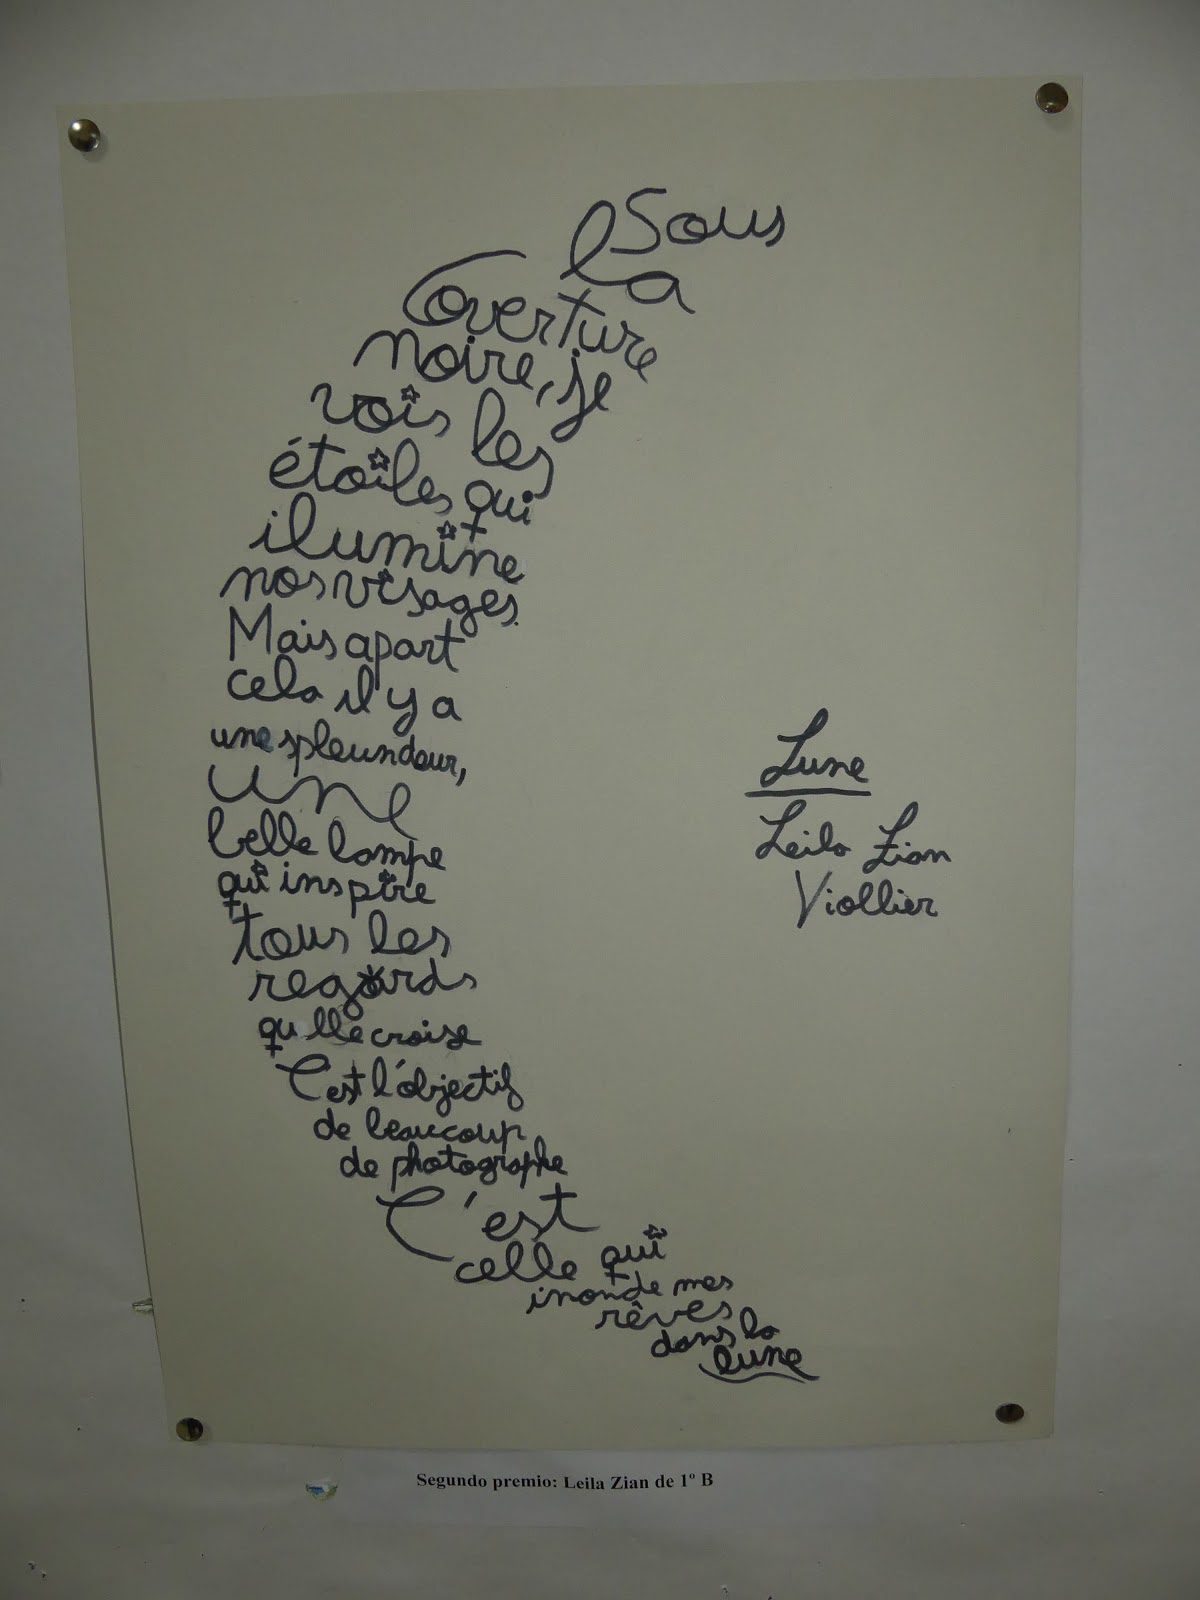 Sous
la
Coverture
noire, je
vois les
étoiles qui
ilumine
nos visages.
Mais apart
cela il y a
une spleundeur,
une
belle lampe
qui inspire
tous les
regards
qu'lle croise
C'est l'objectif
de beaucoup
de photographe
C'est
celle qui
inonde mes
rêves
dans la
lune
Lune
Leila Zian
Viollier
Segundo premio: Leila Zian de 1º B